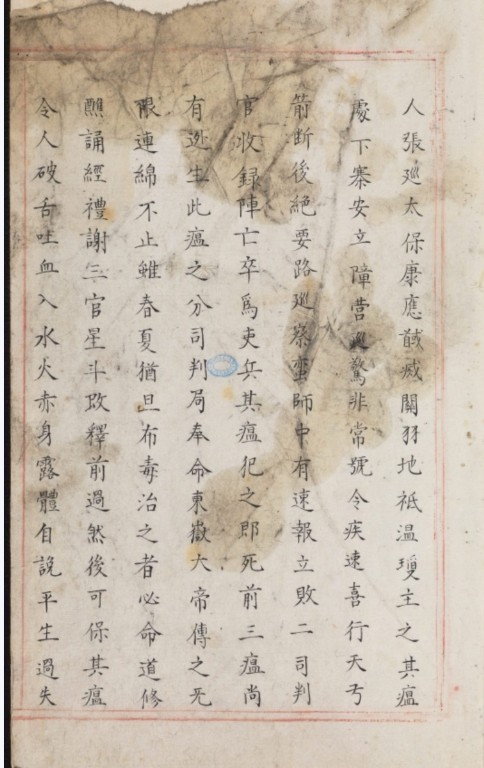 人張巡太保康應馘威關羽地祇温瓊主之其瘟
處下寨安立障营巡驚非常號令疾速喜行天弓
箭断後絕要路巡察蛮師中有速報立敗二司判
官收録陣亡卒爲吏兵其瘟犯之即死前三瘟尚
有迯生此瘟之分司判局奉命東嶽大帝傳之无
限連綿不止雖春夏猶旦布毒治之者必命道修
醮誦經禮謝三官星斗攺釋前過然後可保其瘟
令人破舌吐血入水火赤身露體自説平生過失